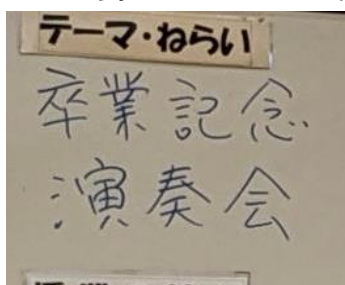 テーマ・ねらい
卒業記念
演奏会